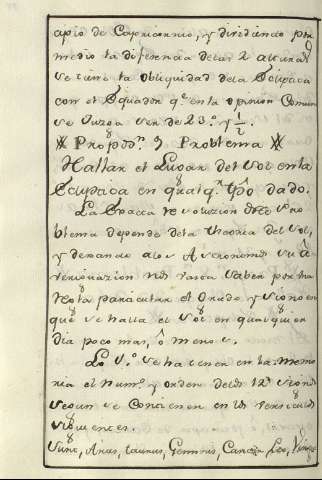 cipio de Capricornio, y dividiendo por
medio la diferencia de las 2 alturas
se tiene la obliquidad dela Ecliptica
con el Equador q.e en la opinion Comun
se Juzga ser de 23.º y 1/2.
# Propos.n 3 Problema #
Hallar el Lugar del Sol en la
Ecliptica en qualq.r tpô dado.
La Exacta resolucion deste Pro
blema depende dela theorica del Sol,
y dexando a los Astronomos su a
veriguazion nos vasta saber por ma
neota particular el Grado y signo en
que se halla el Sol en qualquier
dia poco mas, ô menos.
Lo 1.º se ha tener en la memo
ria el num.o y orden delos 12 signos
segun se Contienen en los versiculos
siguientes.
Sunt, Aries, Taurus, Geminis, Cancer, Leo, Virgo